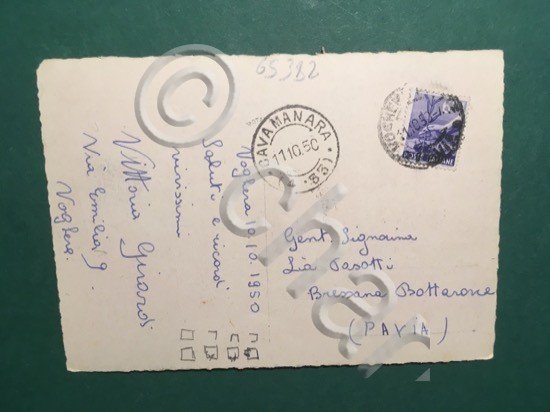 65382
CAVA MANARA
11.10.50
Voghera 10.10.1950
Saluti e ricordi
vivissimi
Vittoria Girardi
Via Emilia 9
Voghera
Gent. Signorina
Lia Pasotti
Bressana Bottarone
(PAVIA)
© char